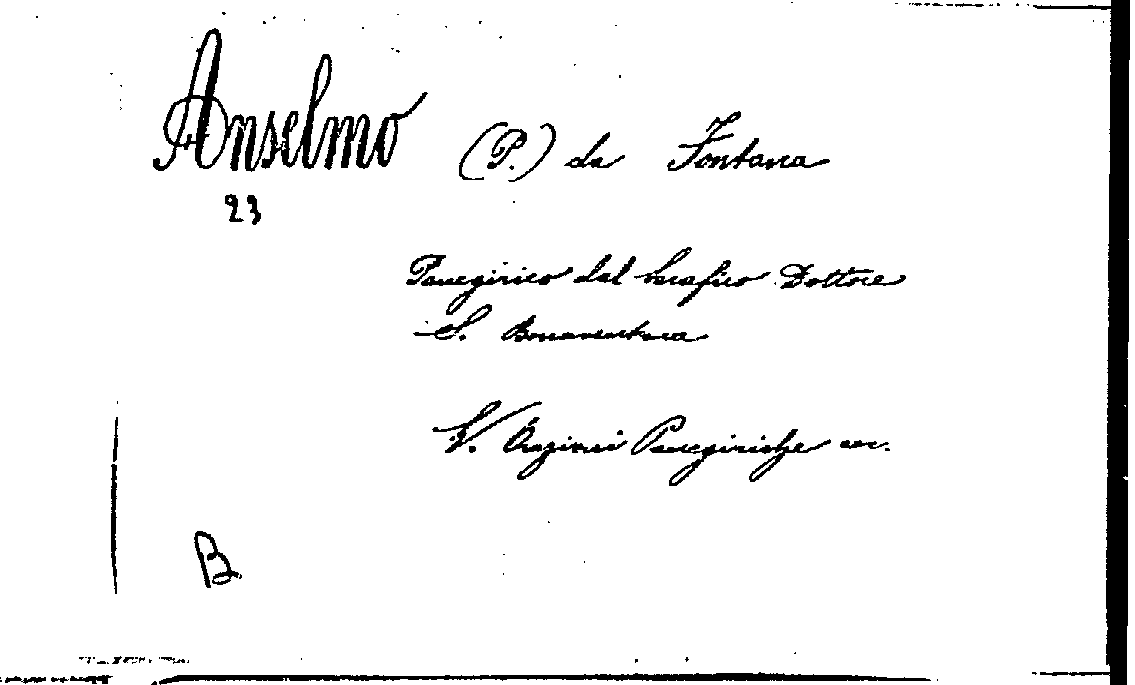 Anselmo (P.) da Fontana
23
Panegirico del Serafico Dottore
S. Bonaventura
V. Orazioni Panegiriche ecc.
B